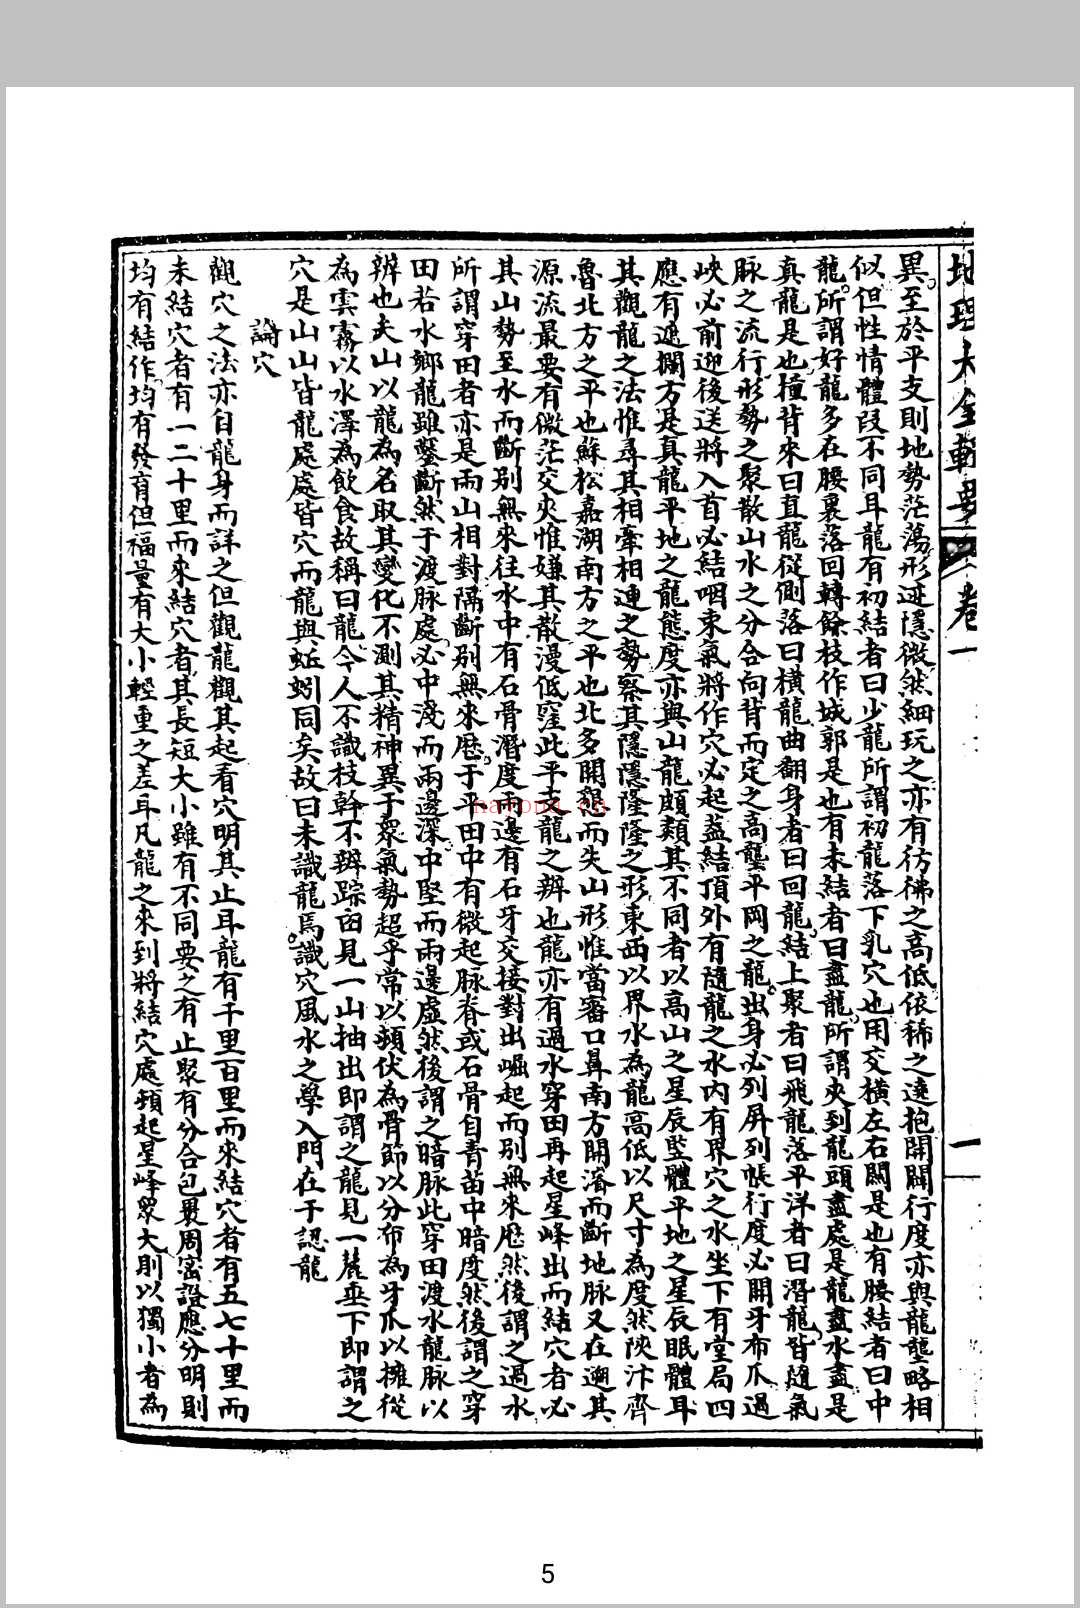 地理大全輯要 卷一 一
異至於平支則地勢茫蕩形迹隱微然細玩之亦有彷彿之高低依稀之遶抱開闢行度亦與龍壟略相
似但性情體段不同耳龍有初結者曰少龍所謂初龍落下乳穴也用交橫左右關是也有腰結者曰中
龍所謂好龍多在腰裏落回轉餘枝作城郭是也有未結者曰盡龍所謂夾到龍頭盡處是龍盡水盡是
真龍是也撞背來曰直龍從側落曰橫龍曲翻身者曰回龍結上聚者曰飛龍落平洋者曰潛龍皆隨氣
脉之流行形勢之聚散山水之分合向背而定之高壟平岡之龍出身必列屏列帳行度必開牙布爪過
峽必前迎後送將入首必結咽束氣將作穴必起蓋結頂外有隨龍之水內有界穴之水坐下有堂局四
應有遮攔方是真龍平地之龍態度亦與山龍頗類其不同者以高山之星辰豎體平地之星辰眠體耳
其觀龍之法惟尋其相牽相連之勢察其隱隱隆隆之形東西以界水為龍高低以尺寸為度然陝汴齊
魯北方之平也蘇松嘉湖南方之平也北多開墾而失山形惟當審口鼻南方開濬而斷地脉又在遡其
源流最要有微茫交夾惟嫌其散漫低窪此平支龍之辨也龍亦有過水穿田再起星峰出而結穴者必
其山勢至水而斷別無來往水中有石骨潛度兩邊有石牙交接對出崛起而別無來歷然後謂之過水
所謂穿田者亦是兩山相對隔斷別無來歷于平田中有微起脉脊或石骨自青苗中暗度然後謂之穿
田若水鄉龍雖鑿斷然于渡脉處必中淺而兩邊深中堅而兩邊虛然後謂之暗脉此穿田渡水龍脉以
辨也夫山以龍為名取其變化不測其精神異于衆氣勢超乎常以頓伏為骨節以分布為牙爪以擁從
為雲霧以水澤為飲食故稱曰龍今人不識枝幹不辨踪由見一山抽出即謂之龍見一麓垂下即謂之
穴是山山皆龍處處皆穴而龍與蚯蚓同矣故曰未識龍焉識穴風水之學入門在于認龍
論穴
觀穴之法亦自龍身而詳之但觀龍觀其起看穴明其止耳龍有千里百里而來結穴者有五七十里而
來結穴者有一二十里而來結穴者其長短大小雖有不同要之有止聚有分合包裹周密證應分明則
均有結作均有發育但福量有大小輕重之差耳凡龍之來到將結穴處頓起星峰衆大則以獨小者為
nayona.cn
5